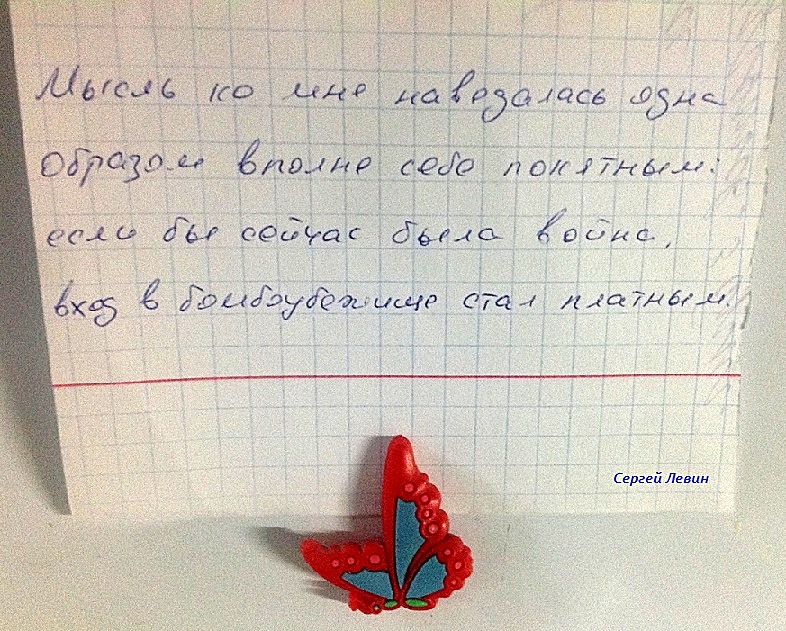 Мысль ко мне наведалась одна
образом вполне себе понятным:
если бы сейчас была война,
вход в бомбоубежище стал платным.
Сергей Левин